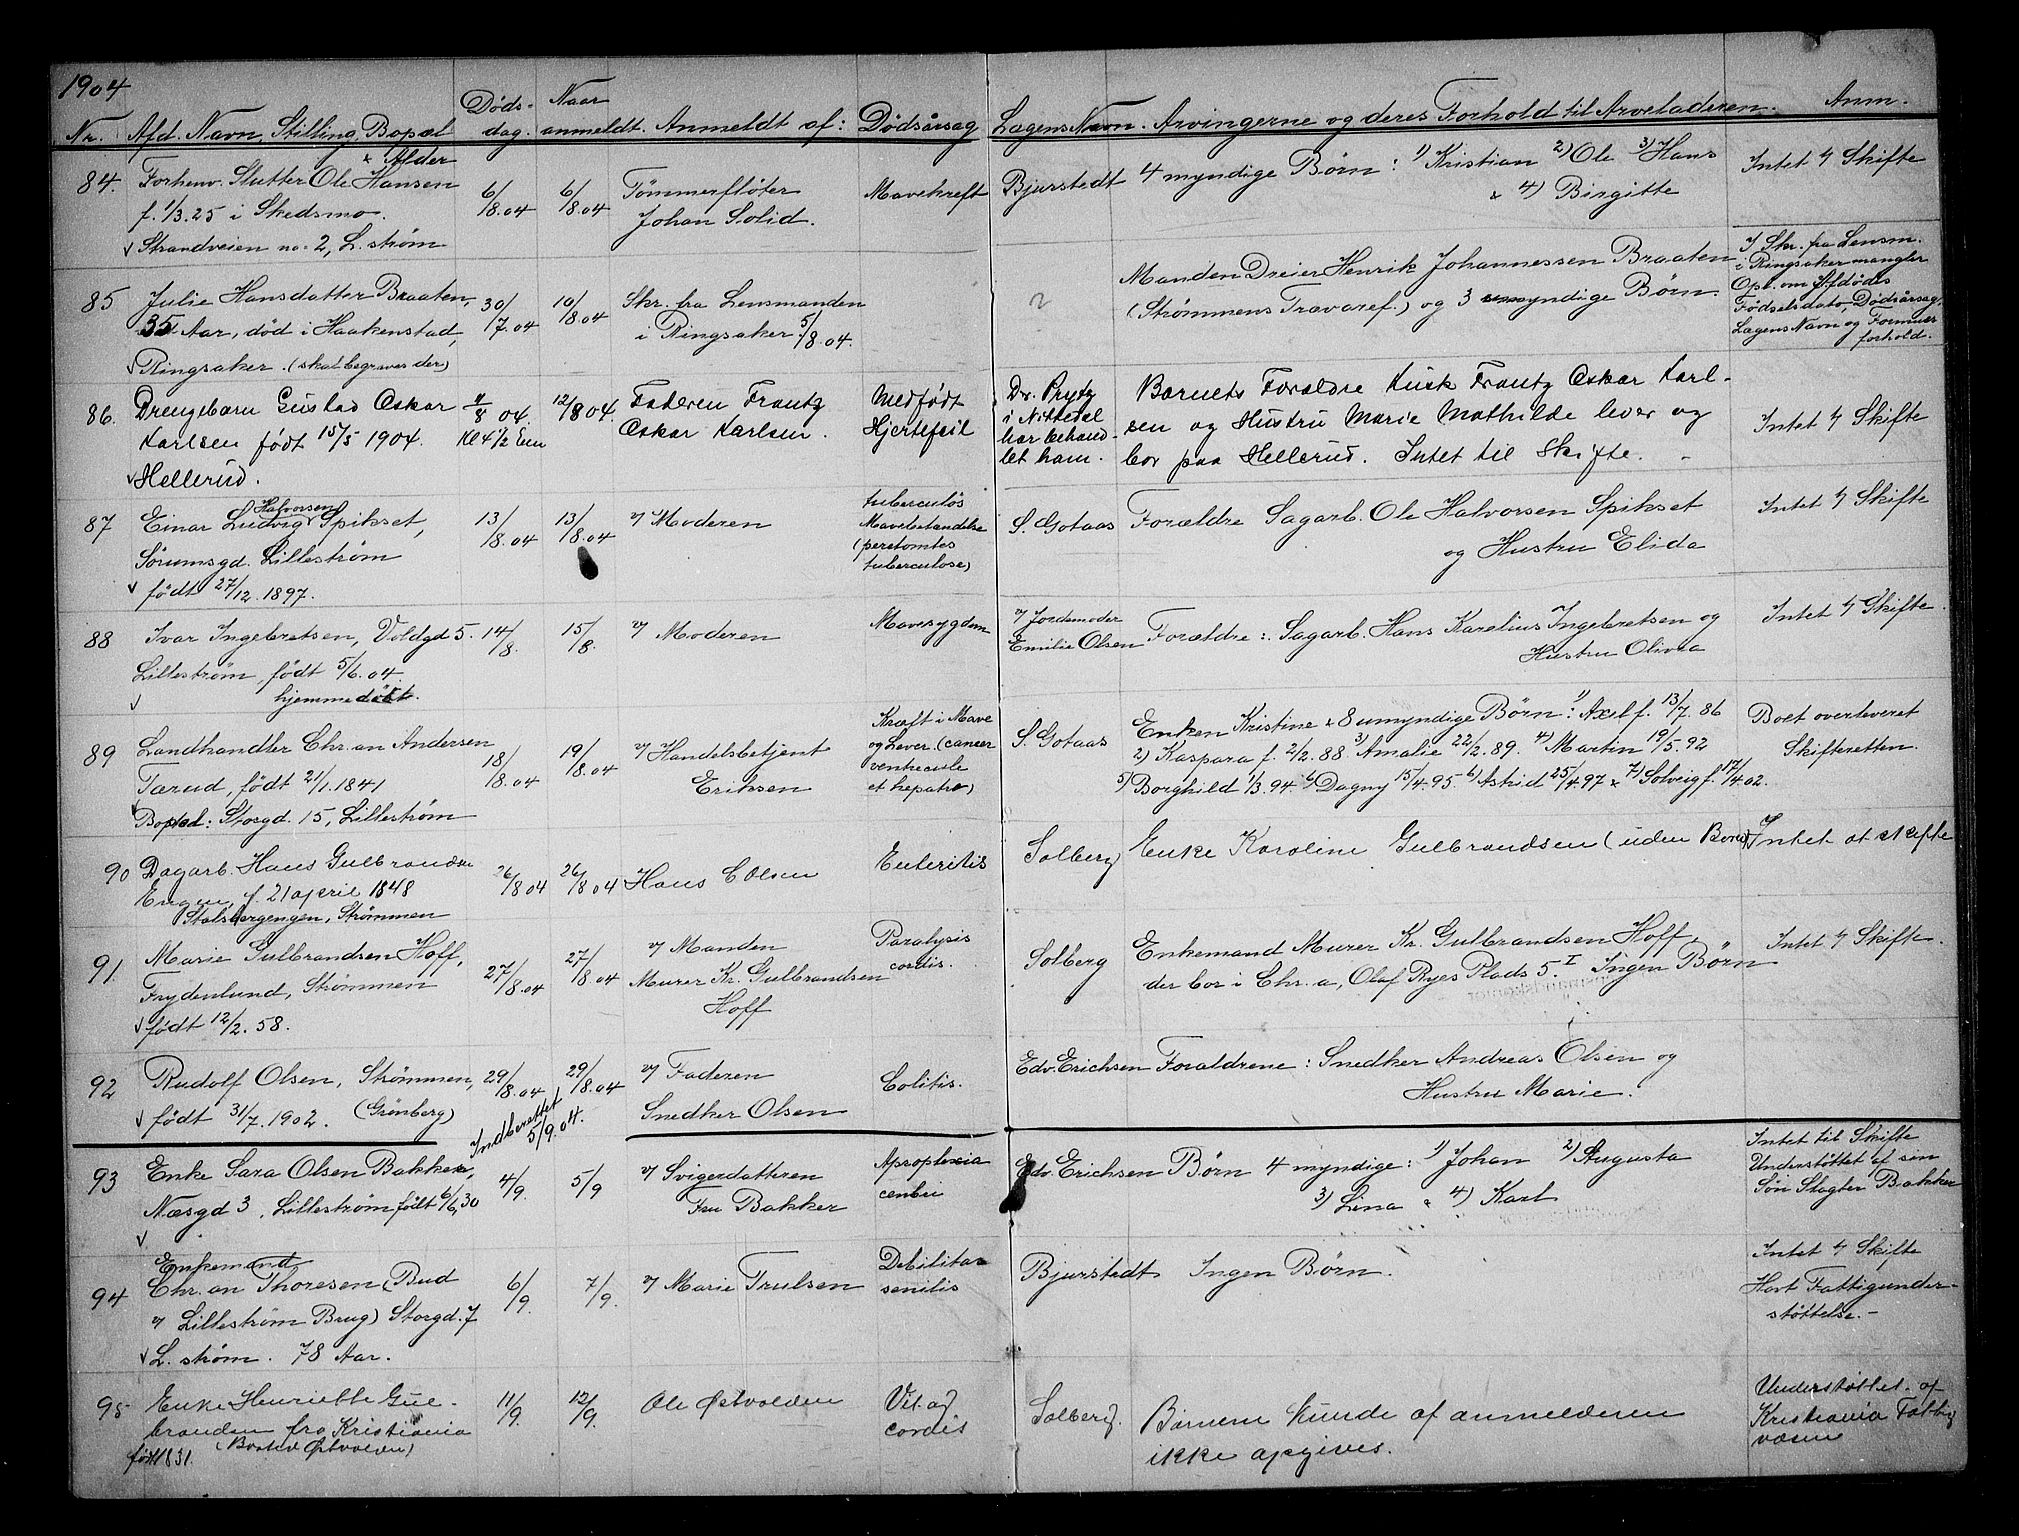 1904
Nr. Afd. Navn, Stilling, Bopæl & Alder Døds-dag. Naar anmeldt. Anmeldt af: Dødsårsag Lægens Navn. Arvingerne og deres Forhold til Arveladeren. Anm.
84. Forhenv. Slutter Ole Hansen 6/8.04 6/8.04 Tømmerfløter Mavekreft Bjurstedt 4 myndige Børn: 1) Kristian 2) Ole 3) Hans Intet t/ Skifte
f. 1/3.25 i Skedsmo. Johan Solid. & 4) Birgitte
Strandveien no. 2, L. strøm
85 Julie Hansdatter Braaten, 30/7.04 10/8.04 Skr. fra Lensmanden ? Manden Dreier Henrik Johannessen Braaten I Skr. fra Lensm.
35 Aar, død i Haakenstad, i Ringsaker 5/8.04. (Strømmens Travaref.) og 3 umyndige Børn. i Ringsaker mangler
Ringsaker. (skal begraves der) Opl. om Afdøds
Fødselsdato, Dødsårsag,
Lægens Navn og Formues
forhold.
86. Drengebarn Gustav Oskar 11/8 04 12/8 04. Faderen Frantz Medfødt Dr. Prytz Barnets Foreldre Kusk Frantz Oskar Karl-
Karlsen født 15/5 1904. Kl 4 1/2 Em Oskar Karlsen. Hjertefeil i Nittedal sen og Hustru Marie Mathilde lever og Intet t/ Skifte
Hellerud. har behand-let ham. bor paa Hellerud. Intet til Skifte.
87 Einar Ludvig Halvorsen Spikset, 13/8.04 13/8.04 v/ Moderen tuberculøs S. Gotaas Forældre Sagarb. Ole Halvorsen Spikset Intet t/ Skifte
Sørumsgd. Lillestrøm Mavebetændelse og Hustru Elida
født 27/12. 1897. (peretomtes
tuberculose)
88 Ivar Ingebretsen, Voldgd 5. 14/8. 15/8. v/ Moderen Mavesygdom v/ Jordemoder Forældre: Sagarb. Hans Karelius Ingebretsen og Intet t/ Skifte.
Lillestrøm, født 5/6.04. Emilie Olsen Hustru Olivia
hjemmedøbt.
89 Landhandler Chr.an Andersen 18/8.04 19/8.04 v/ Handelsbetjent Kræft i Mave S. Gotaas Enken Kristine & 8 umyndige Børn: 1) Axel f. 13/7. 86 Boet overleveret
Tærud, født 21/1. 1841 Eriksen og Lever. (cancer 2) Kaspara f. 2/2. 88. 3) Amalie 22/2. 89. 4) Martin 19/5. 92 Skifteretten.
Bopæl: Storgd. 15, Lillestrøm ventricule et hepatre) 5) Borghild 1/3. 94. 6) Dagny 15/4. 95. 6) Astrid 25/4. 97 & 7) Solveig f. 17/4 02.
90 Dagarb. Hans Gulbrandsen 26/8 04 26/8 04 Hans C Olsen Enteritis Solberg Enke Karoline Gulbrandsen (uden Børn) Intet at skifte
Engen, f. 21 april 1848
Stalsbergengen, Strømmen
91. Marie Gulbrandsen Hoff, 27/8.04 27/8 04 v/ Manden Paralysis Solberg Enkemand Murer Kr. Gulbrandsen Hoff, Intet t/ Skifte.
Frydenlund, Strømmen Murer Kr. Gulbrandsen cordis. der bor i Chr.a, Olaf Ryes Plads 5. I Ingen Børn
født 12/2. 58. Hoff
92 Rudolf Olsen, Strømmen, 29/8.04 29/8.04 v/ Faderen Colitis. Edv. Erichsen Foraldrene: Snedker Andreas Olsen og
født 31/7. 1902. (Grønberg) Snedker Olsen Hustru Marie.
Indberettet 5/9.04.
93 Enke Sara Olsen Bakken, 4/9. 5/9 v/ Svigerdatteren Apoplexia Edv. Erichsen Børn 4 myndige: 1) Johan 2) Augusta Intet til Skifte
Næsgd 3, Lillestrøm født 6/6.30 Fru Bakker cerebri 3) Lina & 4) Karl Understøttet af sin
Søn Slagter Bakker
94 Enkemand 6/9. 7/9. v/ Marie Trulsen Debilitas Bjurstedt Ingen Børn. Intet t/ Skifte
Chr.an Thoresen (Bud senilis Havt Fattigunder-
v/ Lillestrøm Brug) Storgd. 7 støttelse.-
L. strøm. 78 Aar.
95 Enke Henriette Gul- 11/9. 12/9. Ole Østvolden Vit. Solberg. Børnene kunde af anmelderen Understøttet af
bransen fra Kristiania cordis ikke opgives. Kristiania Fattig
(Bosted Østvolden) væsen
født 1831.